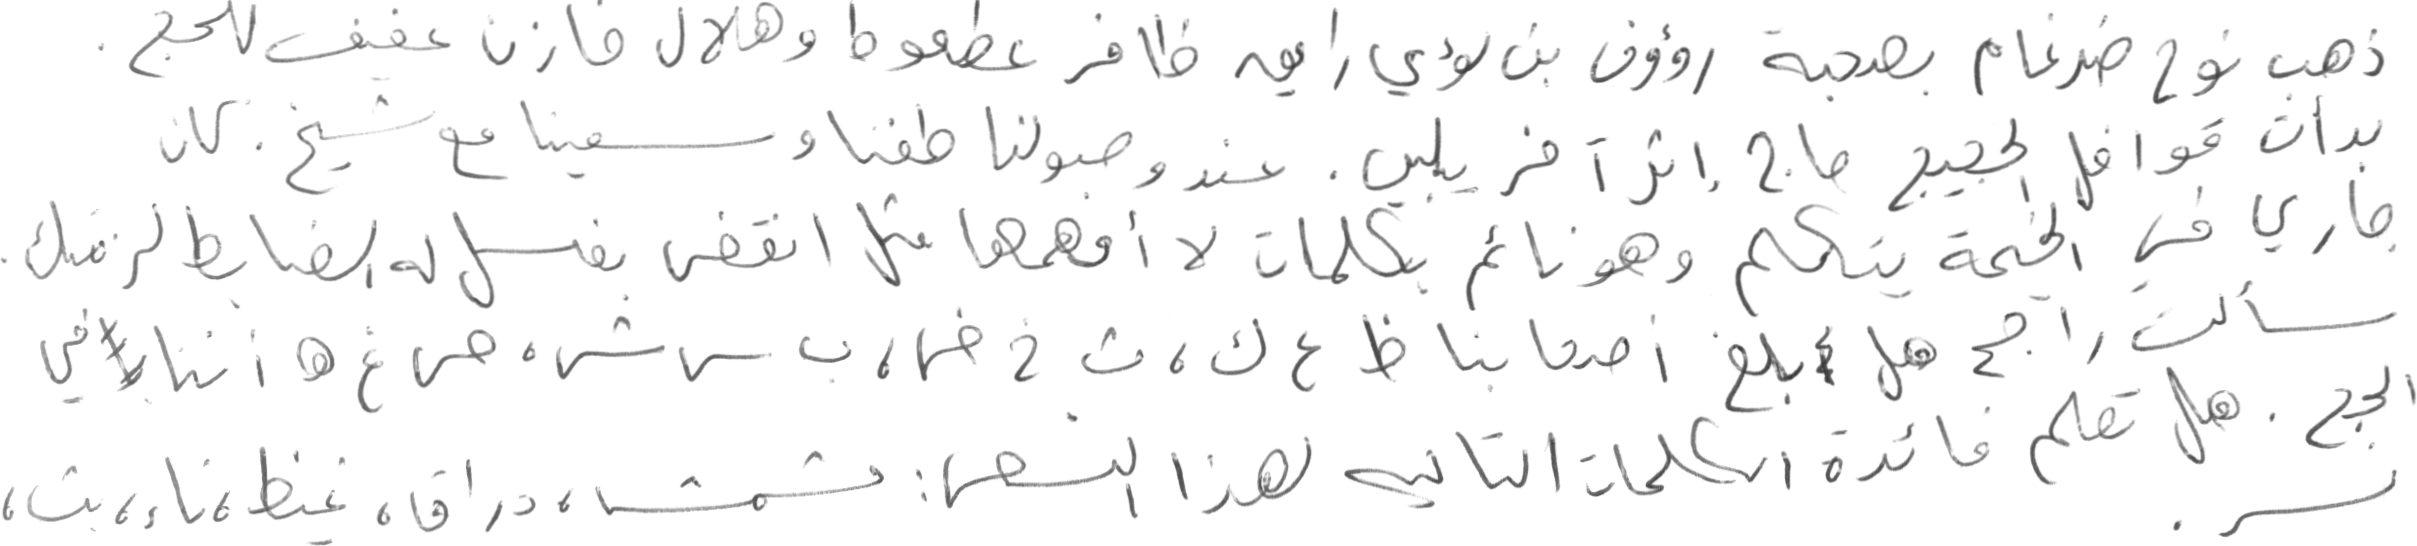 ذهب نوح ضرغام بصحبة رؤوف بن لؤي رافع ظافر عطعوط وهلال مازن عفيف للحج .
بدأت قوافل الحجيج حاج إثر آخر يلبي . عند وصولنا طفنا وسعينا مع شيخ . كان
جاري في الخيمة يتكلم وهو نائم بكلمات لا أفهمها مثل انقض بغسل له الضابط لزقبك .
سألت راجح هل بلغ أصحابنا ظ ع ك ، ث خ ض ، ب س ش ، ص غ ه أننا في
الحج . هل تعلم فائدة الكلمات التالية لهذا النص : مشمشا ، دراق ، غيظ ، ناء ، بث ،
نسر .